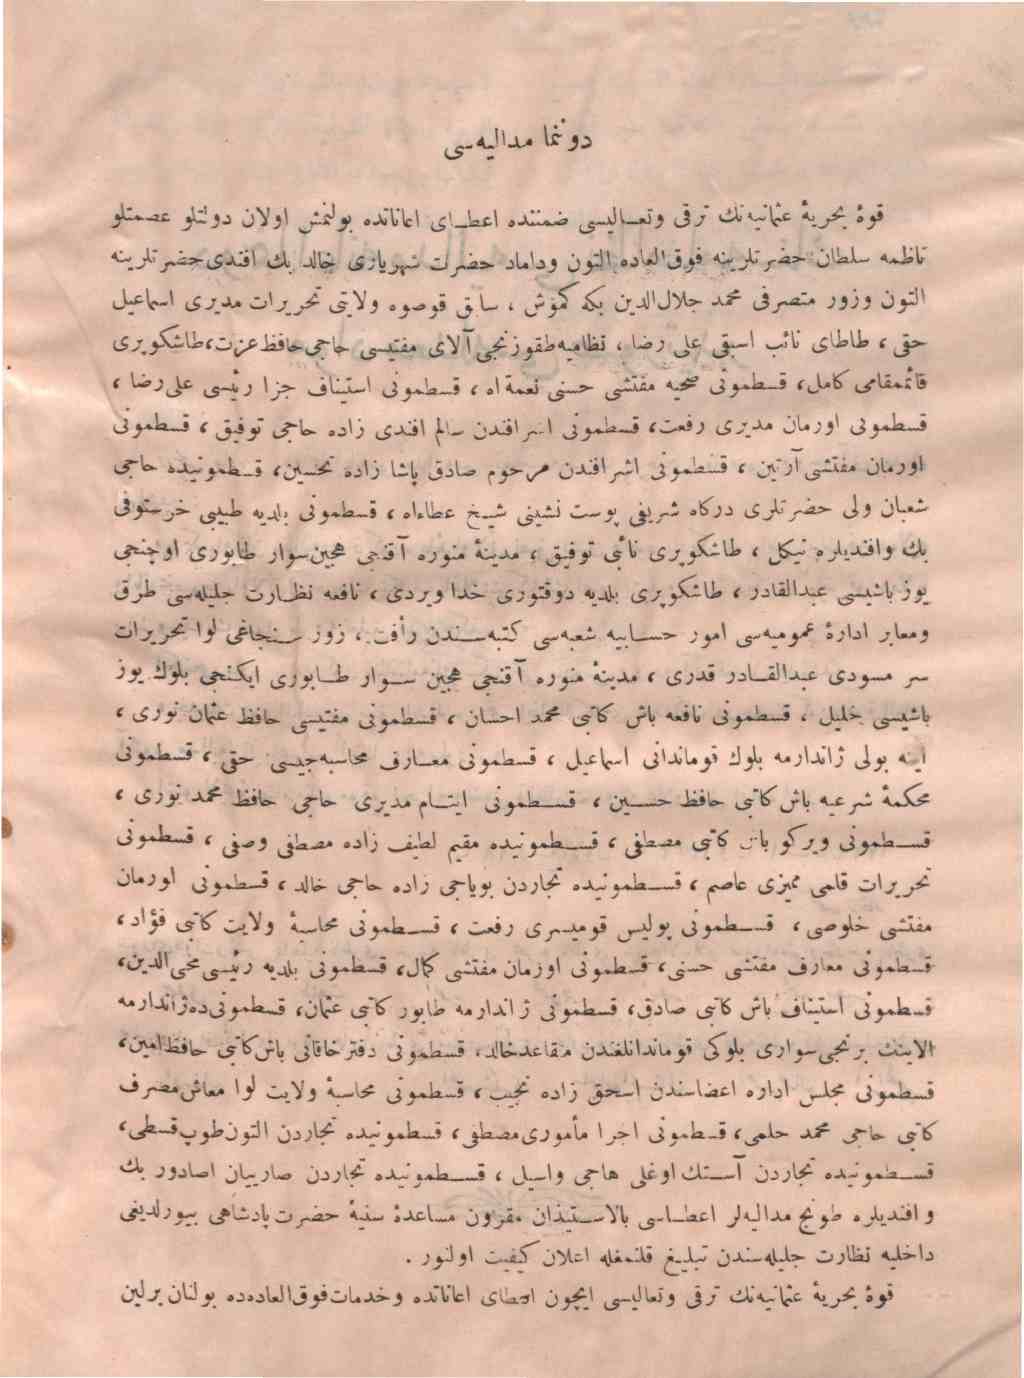 دوننما مداليه‌سی
قوۀ بحريۀ عثمانيه‌نك ترقی وتعـاليسی ضمننده اعطـای اعاناتده بولنمش اولان دولتلو عصمتلو
ناظمه سلطان حضرتلرينه فوق‌العاده التون وداماد حضرت شهرياری خالد بك افندی حضرتلرينه
التون وزور متصرفی محمد جلال‌الدين بكه كموش ، سابق قوصوه ولايتی تحريرات مديری اسماعيل
حقی ، طاطای نائب اسبقی علی رضا ، نظاميه طقوزنجی آلای مفتيسی حاجی حافظ عزت، طاشكوپری
قائممقامی كامل، قسطمونی صحيه مفتشی حسنی نعمة‌اه ، قسطمونی استيناف جزا رئيسی علی رضا ،
قسطمونی اورمان مديری رفعت، قسطمونی اشرافندن سالم افندی زاده حاجی توفيق ، قسطمونی
اورمان مفتشی آرتين ، قسطمونی اشرافندن مرحوم صادق پاشا زاده تحسين، قـسطمونيده حاجی
شعبان ولی حضرتلری درگاه شريفی پوست نشينی شيخ عطاءاه ، قسطمونی بلديه طبيبی خرستوفی
بك وافنديلره نيكل ، طاشكوپری نائبی توفيق ، مدينۀ منوره آقنجی هجين‌سوار طابوری اوچنجی
يوز باشيسی عبدالقادر ، طاشكوپری بلديه دوقتوری خدا ويردی ، نافعه نظـارت جليله‌سی طرق
ومعابر ادارۀ عموميه‌سی امور حسـابيه شعبه‌سی كتبه‌سـندن رأفت ، زور سـنجاغی لوا تحريرات
سر مسودی عبدالقـادر قدری ، مدينۀ منوره آقنجی هجين سـوار طـابوری ايكنجی بلوك يوز
باشيسی خليل ، قسطمونی نافعه باش كاتبی محمد احسان ، قسطمونی مفتيسی حافظ عثمان نوری ،
اينه بولی ژاندارمه بلوك قوماندانی اسماعيل ، قسطمونی معـارف محاسبه‌جيسی حقی ، قسطمونی
محكمۀ شرعيه باش كاتبی حافظ حسـين ، قسـطمونی ايتـام مديری حاجی حافظ محمد نوری ،
قسـطمونی ويركو باش كاتبی مصطفی ، قسـطمونيده مقيم لطيف زاده مصطفی وصفی ، قسطمونی
تحريرات قلمی مميزی عاصم ، قسـطمونيده تجاردن بوياجی زاده حاجی خالد ، قسطمونی اورمان
مفتشی خلوصی ، قسـطمونی پوليس قوميسری رفعت ، قسـطمونی محاسبۀ ولايت كاتبی فؤاد ،
قسطمونی معارف مفتشی حسنی، قسطمونی اورمان مفتشی كمال، قسطمونی بلديه رئيسی محی‌الدين،
قسطمونی استيناف باش كاتبی صادق، قسطمونی ژاندارمه طابور كاتبی عثمان، قسطمونی‌ده ژاندارمه
الاينك برنجی سواری بلوكی قوماندانلغندن متقاعد خالد، قسطمونی دفتر خاقانی باش كاتبی حافظ امين،
قسطمونی مجلس اداره اعضاسندن اسحق زاده نجيب ، قسطمونی محاسبۀ ولايت لوا معاش مصرف
كاتبی حاجی محمد حلمی، قسطمونی اجرا مأموری مصطفی، قسطمونيده تجاردن التون طوپ قسطی،
قسـطمونيده تجاردن آسـتك اوغلی هاجی واسيل ، قسـطمونيده تجاردن صارييان اصادور بك
وافنديلره طونج مداليه‌لر اعطـاسی بالاسـتيذان مقرون مساعدۀ سنيۀ حضرت پادشاهی بيورلديغی
داخليه نظارت جليله‌سندن تبليغ قلنمغله اعلان كيفيت اولنور .
قوۀ بحريۀ عثمانيه‌نك ترقی وتعاليسی ايچون اعطای اعاناتده وخدمات فوق‌العاده‌ده بولنان برلين